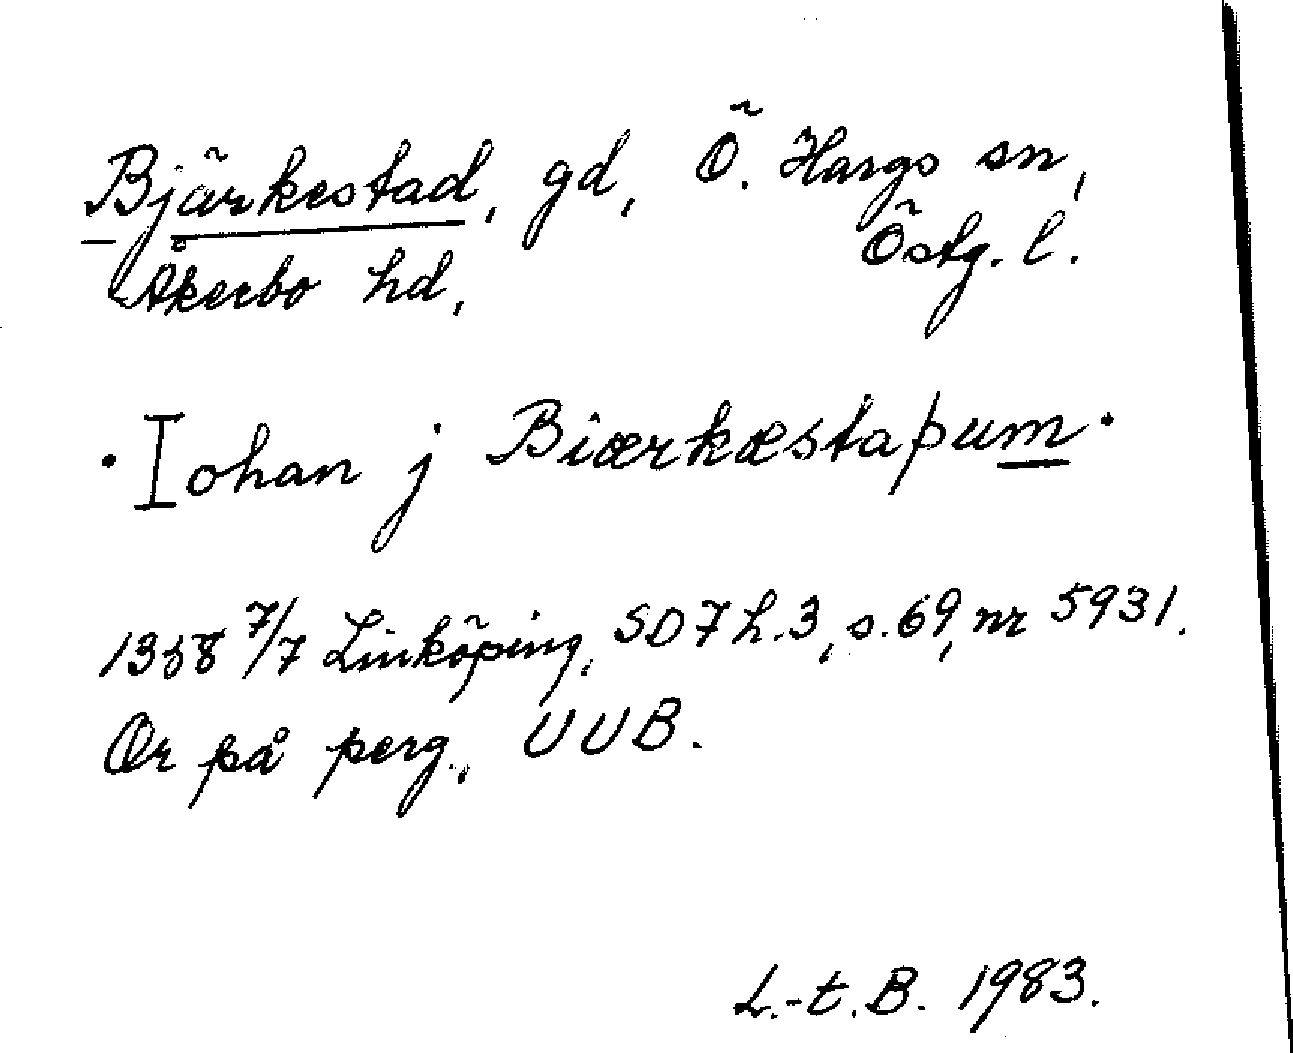 Bjärkestad, gd, Ö. Hargs sn,
Åkerbo hd, Östg. l.
· Iohan j Biærkæstaþum ·
1358 7/7 Linköping, SD 7 h.3, s.69, nr 5931.
Or på perg., UUB.
L.-t. B. 1983.